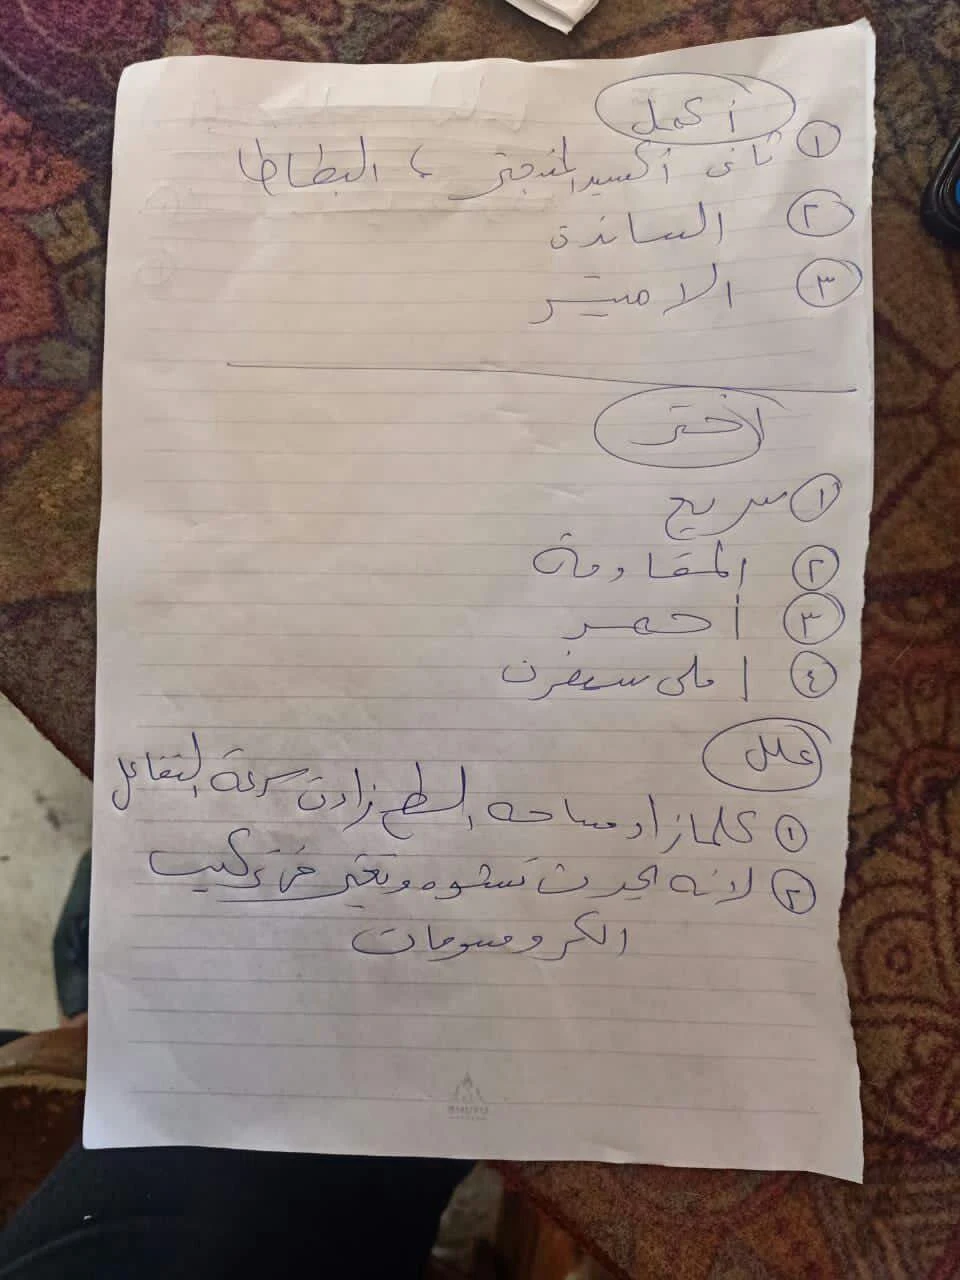 أكمل
١ ثانى أكسيد المنجنيز ، البطاطا
٢ السائدة
٣ الاميتر
لاختر
١ سريع
٢ المقاومة
٣ أحمر
٤ املى سيفرت
علل
١ كلما زاد مساحه السطح زادت سرعة التفاعل
٢ لانه يحدث تشوه وتغير فى تركيب
الكروموسومات